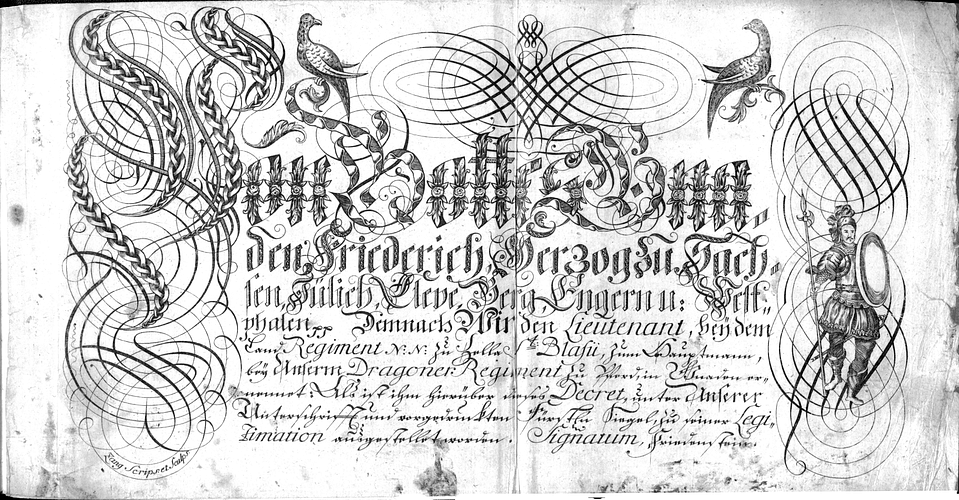 Von Gottes Gna„
den, Friederich, Herzog zu Sach„
sen, Jülich, Cleve, Berg, Engern u: West„
phalen, Demnach Wir den Lieutenant, bey dem
Land Regiment N: N: zu Zella St: Blasii, zum Hauptmann,
bey Unserm Dragoner-Regiment zu Pferd, in Gnaden er„
nennet: Als ist ihm hierüber dieses Decret, unter Unserer
Unterschrifft und vorgedruckten Fürstln Siegel, zu seiner Legi„
timation ausgestellet worden. Signatum, Friedenstein.
Scrips: et Sculps